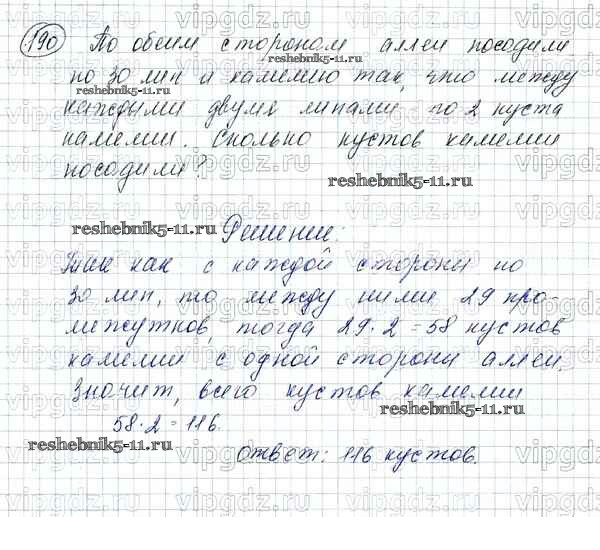 190 По обеим сторонам аллеи посадили
reshebnik5-11.ru
по 30 лип и камелию так, что между
reshebnik5-11.ru
каждыми двумя липами по 2 куста
камелии. Сколько кустов камелии
посадили?
reshebnik5-11.ru
reshebnik5-11.ru
Решение:
Так как с каждой стороны по
30 лип, то между ними 29 про-
межутков, тогда 29·2=58 кустов
камелии с одной стороны аллеи.
Значит, всего кустов камелии
reshebnik5-11.ru
58·2=116.
reshebnik5-11.ru
Ответ: 116 кустов.
vipgdz.ru